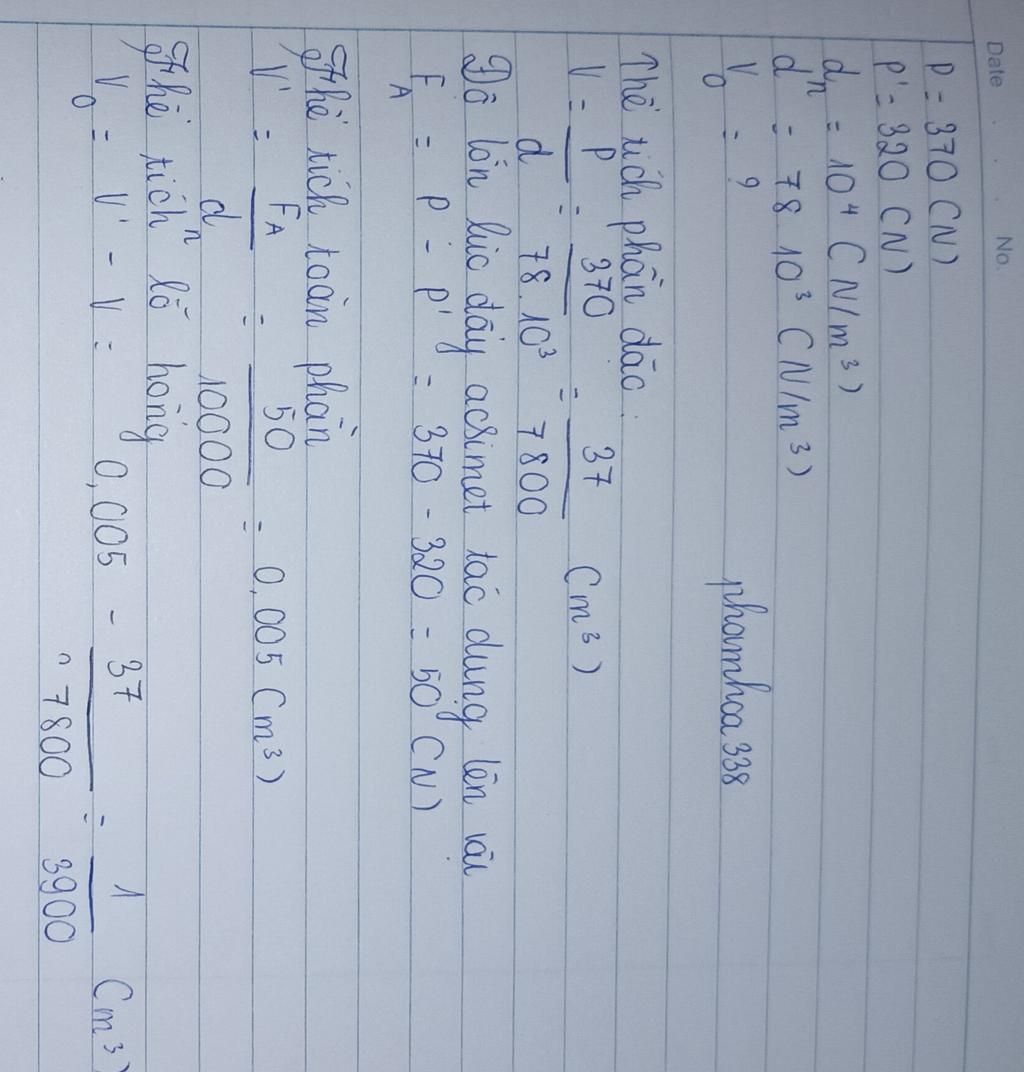 Date No.
P = 370 (N)
P' = 320 (N)
dn = 10⁴ (N/m³)
d = 78.10³ (N/m³)
V₀ = ?
phamhoa338
Thể tích phần đặc:
V = P/d = 370/78.10³ = 37/7800 (m³)
Độ lớn lực đẩy acsimet tác dụng lên vật
FA = P - P' = 370 - 320 = 50 (N)
Thể tích toàn phần
V' = FA/dn = 50/10000 = 0,005 (m³)
Thể tích lỗ hổng
V₀ = V' - V = 0,005 - 37/7800 = 1/3900 (m³)